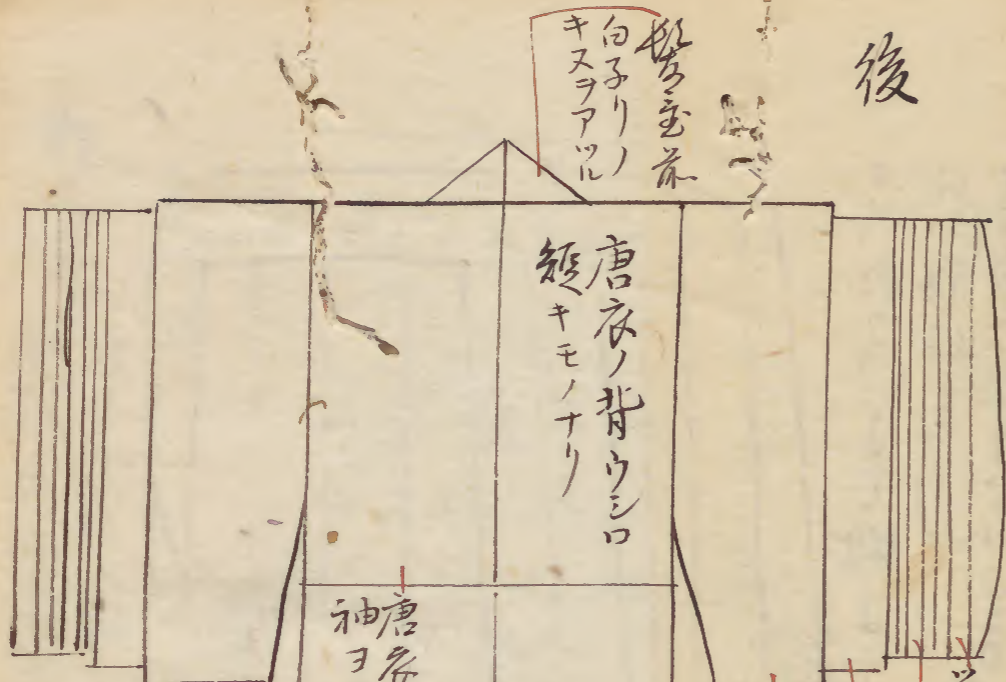 後
髪置前
白子リノ
キヌヲアツル
唐衣ノ背ウシロ
短キモノナリ
唐衣
袖ヨ